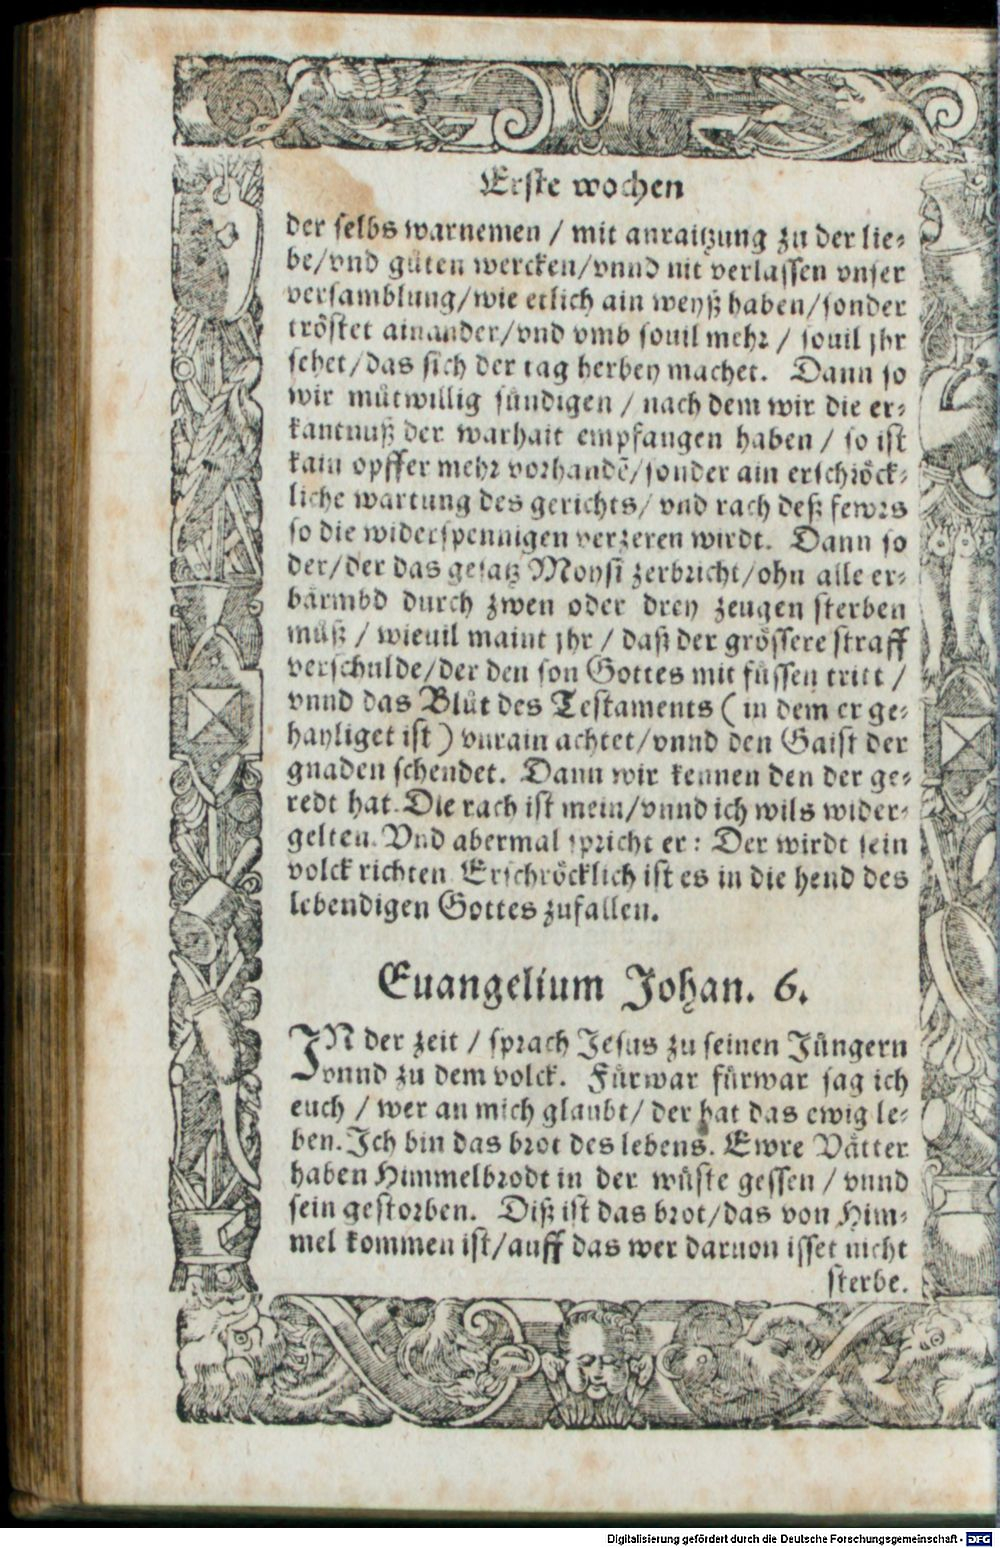 Erste wochen
der selbs warnemen / mit anraitzung zu der lie⸗
be/vnd gůten wercken/vnnd nit verlassen vnser
versamblung/wie etlich ain weyß haben/sonder
tröstet ainander/vnd vmb souil mehr / souil jhr
sehet/das sich der tag herbey machet. Dann so
wir můtwillig sündigen / nach dem wir die er⸗
kantnuß der warhait empfangen haben / so ist
kain opffer mehr vorhandẽ/sonder ain erschröck⸗
liche wartung des gerichts/ vnd rach deß fewrs
so die widerspennigen verzeren wirdt. Dann so
der/der das gesatz Moysi zerbricht/ohn alle er⸗
bärmbd durch zwen oder drey zeugen sterben
můß / wieuil maint jhr / daß der grössere straff
verschulde/der den son Gottes mit füssen tritt /
vnnd das Blůt des Testaments ( in dem er ge⸗
hayliget ist ) vnrain achtet/vnnd den Gaist der
gnaden schendet. Dann wir kennen den der ge⸗
redt hat. Die rach ist mein/vnnd ich wils wider⸗
gelten. Vnd abermal spricht er : Der wirdt sein
volck richten. Erschröcklich ist es in die hend des
lebendigen Gottes zufallen.
Euangelium Johan. 6.
IN der zeit / sprach Jesus zu seinen Jüngern
vnnd zu dem volck. Fürwar fürwar sag ich
euch / wer an mich glaubt/ der hat das ewig le⸗
ben. Ich bin das brot des lebens. Ewre Vätter
haben Himmelbrodt in der wüste gessen / vnnd
sein gestorben. Diß ist das brot/das von Him⸗
mel kommen ist/auff das wer daruon isset nicht
sterbe.
Digitalisierung gefördert durch die Deutsche Forschungsgemeinschaft - DFG